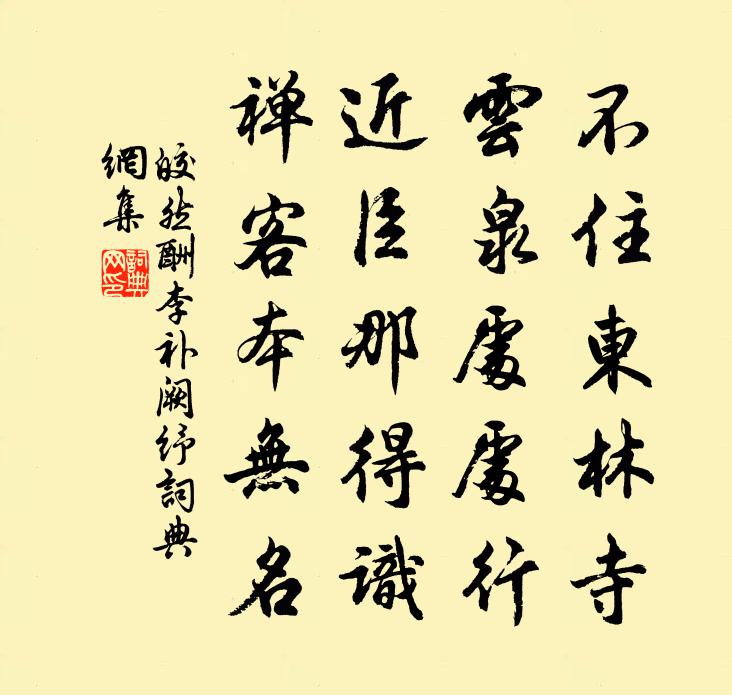 不住東林寺
雲泉處處行
近臣那得識
禅客本無名
皎然酬李补阙纾詞典
網集
詞典
网印